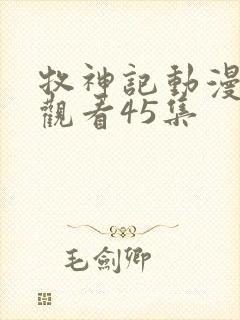 牧神記動漫
觀看45集
毛劍卿